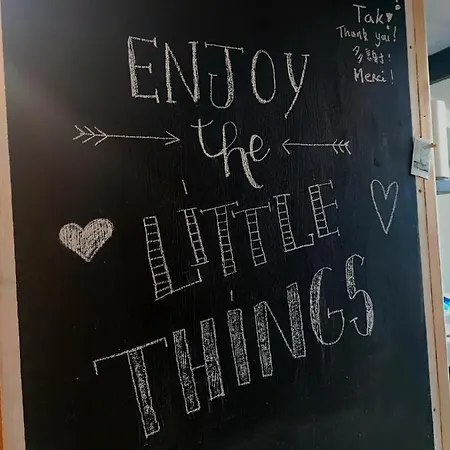 ENJOY
the
LITTLE
THINGS
Tak!
Thank you!
多謝!
Merci!